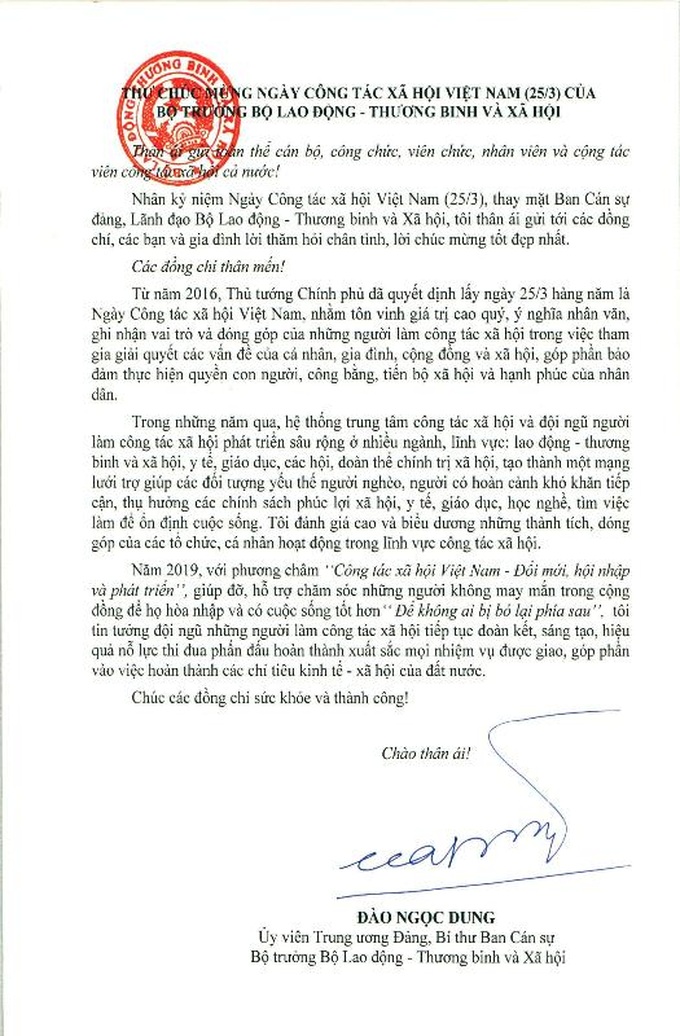 THƯ CHÚC MỪNG NGÀY CÔNG TÁC XÃ HỘI VIỆT NAM (25/3) CỦA
BỘ TRƯỞNG BỘ LAO ĐỘNG - THƯƠNG BINH VÀ XÃ HỘI
Thân ái gửi toàn thể cán bộ, công chức, viên chức, nhân viên và cộng tác
viên công tác xã hội cả nước!
Nhân kỷ niệm Ngày Công tác xã hội Việt Nam (25/3), thay mặt Ban Cán sự
đảng, Lãnh đạo Bộ Lao động - Thương binh và Xã hội, tôi thân ái gửi tới các đồng
chí, các bạn và gia đình lời thăm hỏi chân tình, lời chúc mừng tốt đẹp nhất.
Các đồng chí thân mến!
Từ năm 2016, Thủ tướng Chính phủ đã quyết định lấy ngày 25/3 hàng năm là
Ngày Công tác xã hội Việt Nam, nhằm tôn vinh giá trị cao quý, ý nghĩa nhân văn,
ghi nhận vai trò và đóng góp của những người làm công tác xã hội trong việc tham
gia giải quyết các vấn đề của cá nhân, gia đình, cộng đồng và xã hội, góp phần bảo
đảm thực hiện quyền con người, công bằng, tiến bộ xã hội và hạnh phúc của nhân
dân.
Trong những năm qua, hệ thống trung tâm công tác xã hội và đội ngũ người
làm công tác xã hội phát triển sâu rộng ở nhiều ngành, lĩnh vực: lao động - thương
binh và xã hội, y tế, giáo dục, các hội, đoàn thể chính trị xã hội, tạo thành một mạng
lưới trợ giúp các đối tượng yếu thế người nghèo, người có hoàn cảnh khó khăn tiếp
cận, thụ hưởng các chính sách phúc lợi xã hội, y tế, giáo dục, học nghề, tìm việc
làm để ổn định cuộc sống. Tôi đánh giá cao và biểu dương những thành tích, đóng
góp của các tổ chức, cá nhân hoạt động trong lĩnh vực công tác xã hội.
Năm 2019, với phương châm "Công tác xã hội Việt Nam - Đổi mới, hội nhập
và phát triển", giúp đỡ, hỗ trợ chăm sóc những người không may mắn trong cộng
đồng để họ hòa nhập và có cuộc sống tốt hơn "Để không ai bị bỏ lại phía sau", tôi
tin tưởng đội ngũ những người làm công tác xã hội tiếp tục đoàn kết, sáng tạo, hiệu
quả nỗ lực thi đua phấn đấu hoàn thành xuất sắc mọi nhiệm vụ được giao, góp phần
vào việc hoàn thành các chỉ tiêu kinh tế - xã hội của đất nước.
Chúc các đồng chí sức khỏe và thành công!
Chào thân ái!
ĐÀO NGỌC DUNG
Ủy viên Trung ương Đảng, Bí thư Ban Cán sự
Bộ trưởng Bộ Lao động - Thương binh và Xã hội